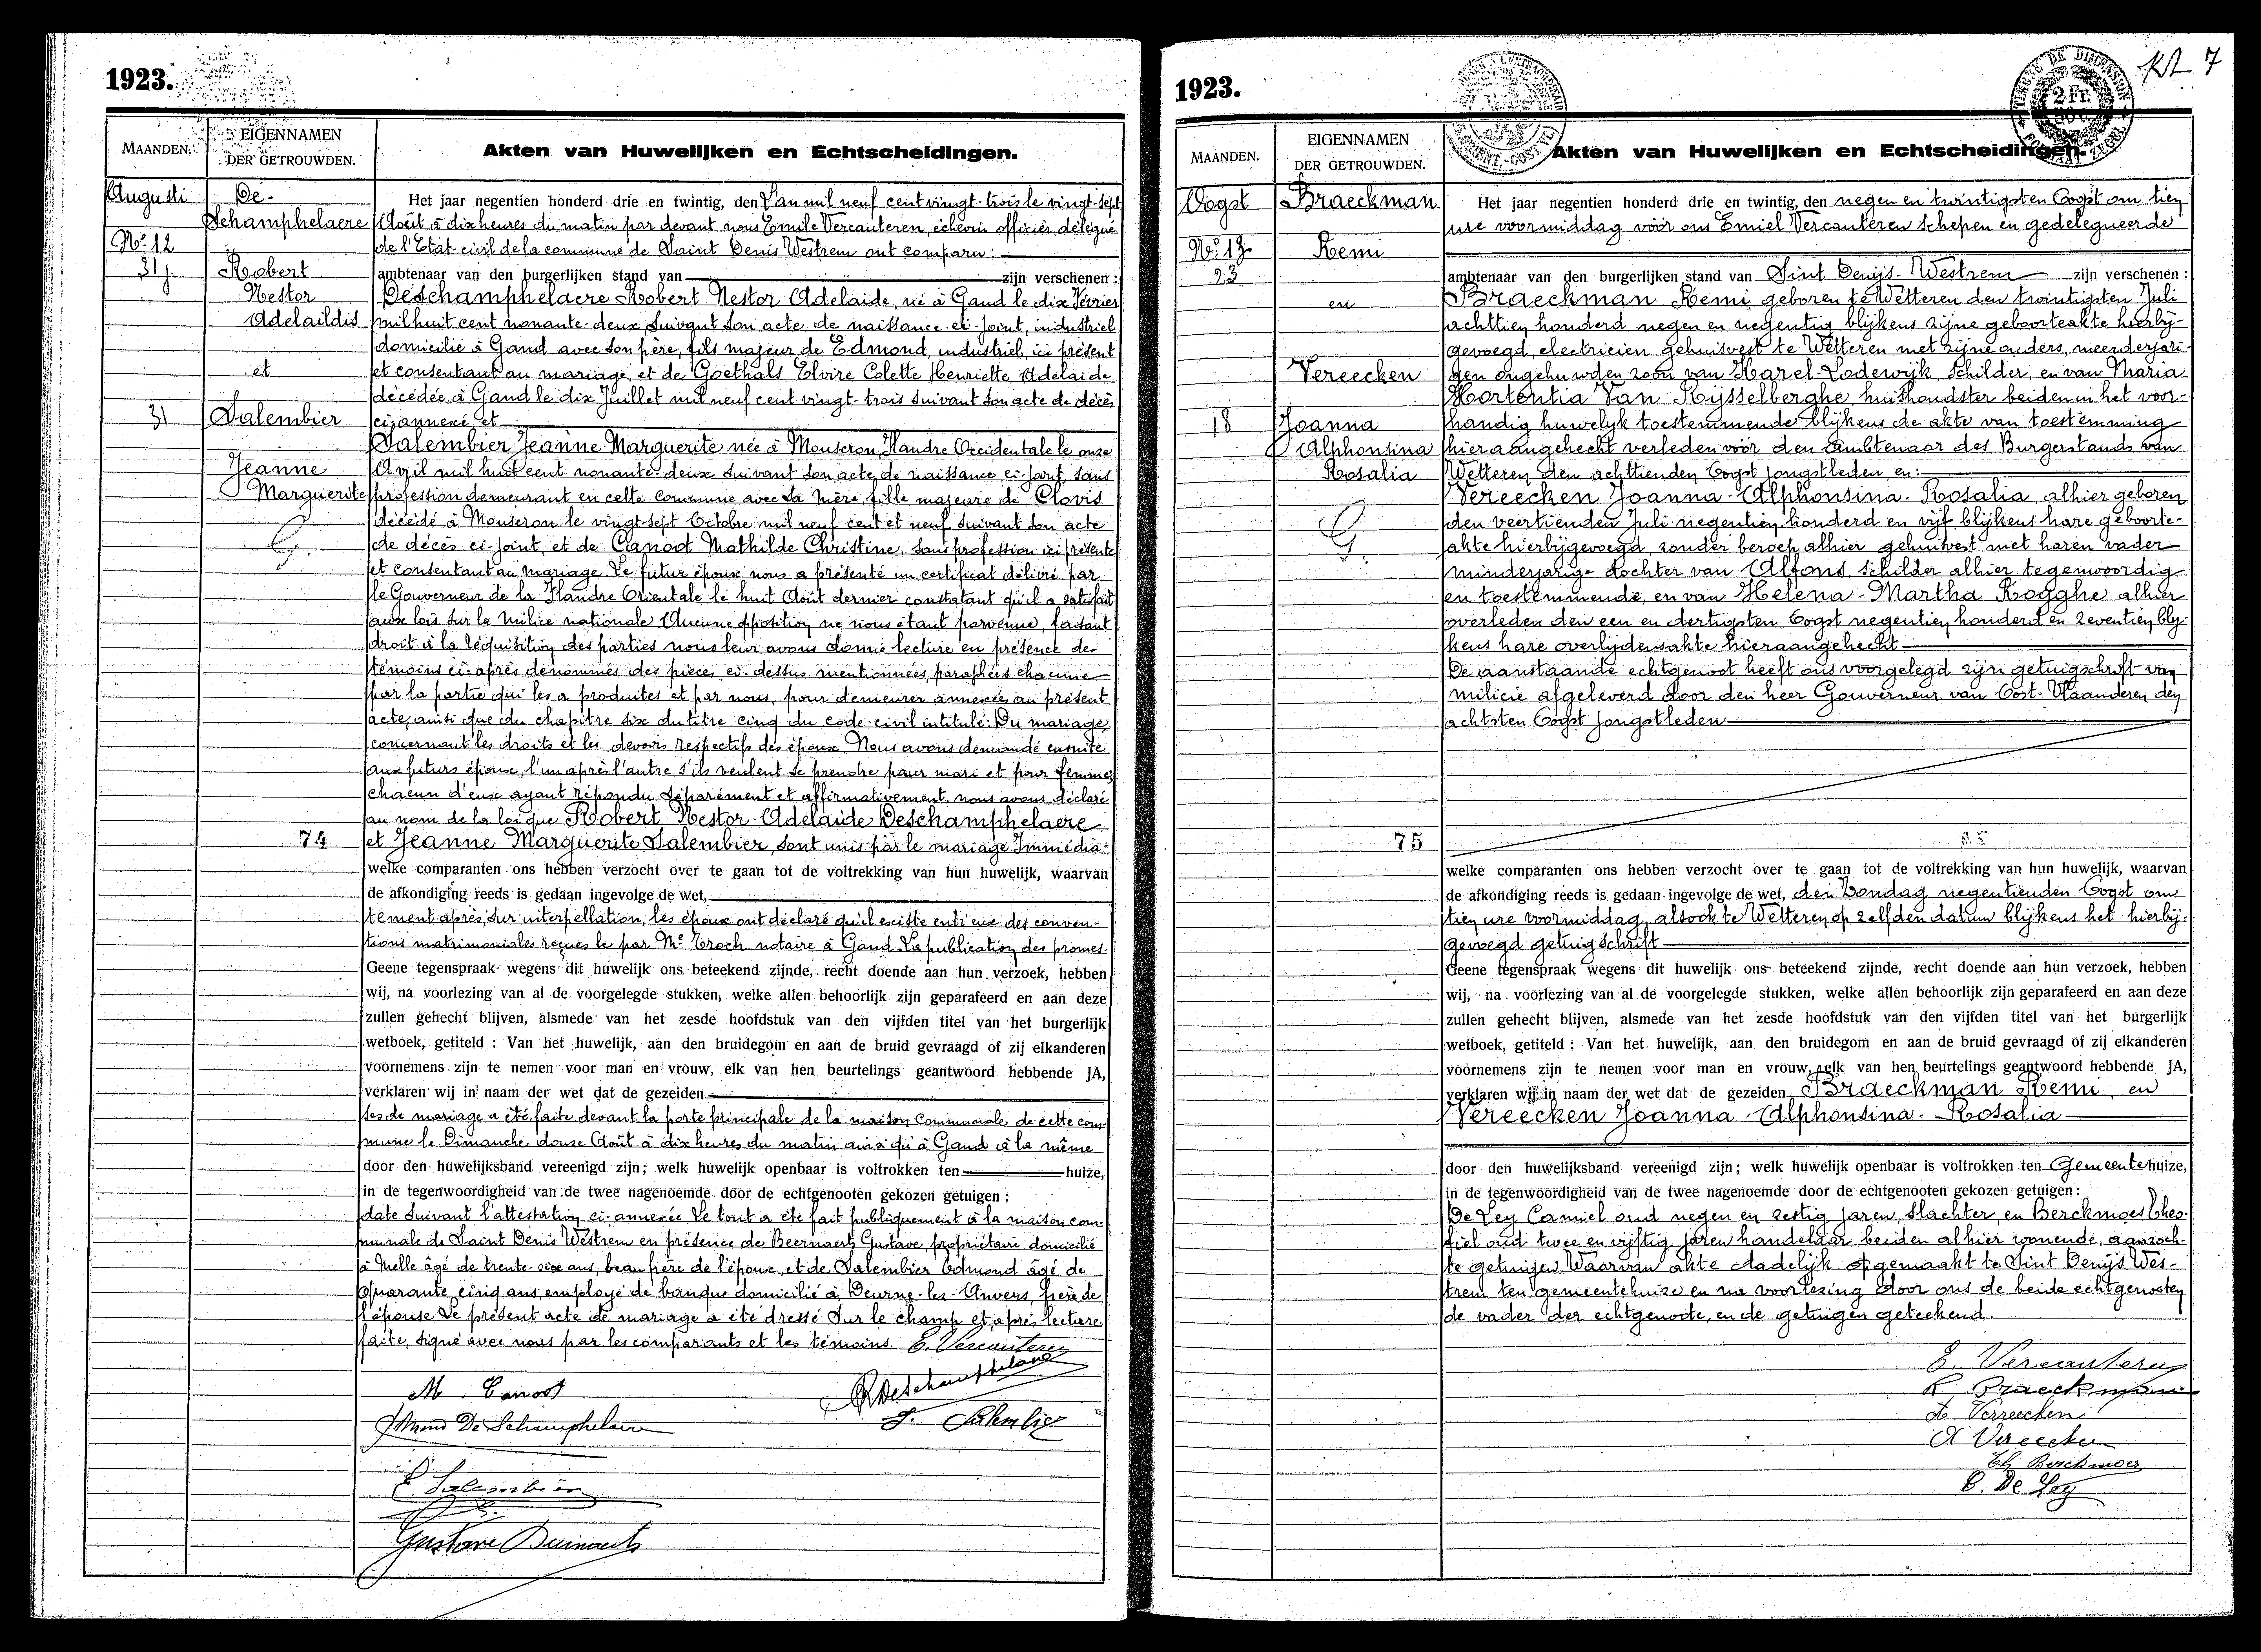 1923.
MAANDEN.
EIGENNAMEN
DER GETROUWDEN.
Akten van Huwelijken en Echtscheidingen.
Augusti
No. 12
31 j.
31
De-
Schamphelaere
Robert
Nestor
Adelaildis
et
Salembier
Jeanne
Marguerite
G.
74
Het jaar negentien honderd drie en twintig, den L'an mil neuf cent vingt-trois le vingt-sept
Août à dix heures du matin par devant nous Emile Vercauteren, échevin officier délégué
de l'Etat-civil de la commune de Saint Denis Westrem ont comparu:
ambtenaar van den burgerlijken stand van zijn verschenen :
Deschamphelaere Robert Nestor Adelaide, né à Gand le dix Février
mil huit cent nonante-deux, suivant son acte de naissance ci-joint, industriel
domicilié à Gand avec son père, fils majeur de Edmond, industriel, ici présent
et consentant au mariage, et de Goethals Elvire Colette Henriette Adelaide
décédée à Gand le dix Juillet mil neuf cent vingt-trois suivant son acte de décès
ci-annexé et
Salembier Jeanne Marguerite née à Mouscron, Flandre Occidentale le onze
Avril mil huit cent nonante-deux suivant son acte de naissance ci-joint, sans
profession demeurant en cette commune avec sa mère fille majeure de Clovis
décédé à Mouscron le vingt-sept Octobre mil neuf cent et neuf suivant son acte
de décès ci-joint, et de Canoot Mathilde Christine, sans profession ici présente
et consentant au mariage. Le futur époux nous a présenté un certificat délivré par
le Gouverneur de la Flandre Orientale le huit Août dernier constatant qu'il a satisfait
aux lois sur la milice nationale Aucune opposition ne nous étant parvenue, faisant
droit à la réquisition des parties nous leur avons donné lecture en présence des
témoins ci-après dénommés des pièces ci-dessus mentionnées, paraphées chacune
par la partie qui les a produites et par nous, pour demeurer annexées au présent
acte, ainsi que du chapitre six du titre cinq du code-civil intitulé: Du mariage,
concernant les droits et les devoirs respectifs des époux. Nous avons demandé ensuite
aux futurs époux, l'un après l'autre s'ils veulent se prendre pour mari et pour femme;
chacun d'eux ayant répondu séparément et affirmativement, nous avons déclaré
au nom de la loi que Robert Nestor Adelaide Deschamphelaere
et Jeanne Marguerite Salembier, sont unis par le mariage. Immédia-
welke comparanten ons hebben verzocht over te gaan tot de voltrekking van hun huwelijk, waarvan
de afkondiging reeds is gedaan ingevolge de wet,
tement après, sur interpellation, les époux ont déclaré qu'il existe entr'eux des conven-
tions matrimoniales reçues le par Me Troch notaire à Gand. La publication des promes-
Geene tegenspraak wegens dit huwelijk ons beteekend zijnde, recht doende aan hun verzoek, hebben
wij, na voorlezing van al de voorgelegde stukken, welke allen behoorlijk zijn geparafeerd en aan deze
zullen gehecht blijven, alsmede van het zesde hoofdstuk van den vijfden titel van het burgerlijk
wetboek, getiteld : Van het huwelijk, aan den bruidegom en aan de bruid gevraagd of zij elkanderen
voornemens zijn te nemen voor man en vrouw, elk van hen beurtelings geantwoord hebbende JA,
verklaren wij in naam der wet dat de gezeiden
ses de mariage a été faite devant la porte principale de la maison communale de cette com-
mune le Dimanche douze Août à dix heures du matin ainsi qu'à Gand à la même
door den huwelijksband vereenigd zijn; welk huwelijk openbaar is voltrokken ten huize,
in de tegenwoordigheid van de twee nagenoemde door de echtgenooten gekozen getuigen :
date suivant l'attestation ci-annexée. Le tout a été fait publiquement à la maison com-
munale de Saint Denis Westrem en présence de Beernaerts Gustave, propriétaire domicilié
à Melle âgé de trente-six ans, beau frère de l'épouse, et de Salembier Edmond âgé de
quarante cinq ans, employé de banque domicilié à Deurne-les-Anvers, frère de
l'épouse. Le présent acte de mariage a été dressé sur le champ et après lecture
faite, signé avec nous par les comparants et les témoins. E. Vercauteren
M. Canoot
RDeschamphelaere
Edmond De Schamphelaere
J. Salembier
E. Salembier
Gustave Beernaerts
1923.
kt 7
TIMBRE DE DIMENSION
2 FR.
MAANDEN.
EIGENNAMEN
DER GETROUWDEN.
Akten van Huwelijken en Echtscheidingen.
Oogst
No. 13
23
18
Braeckman
Remi
en
Vereecken
Joanna
Alphonsina
Rosalia
G.
75
Het jaar negentien honderd drie en twintig, den negen en twintigsten Oogst om tien
ure voormiddag vóór ons Emiel Vercauteren Schepen en gedelegueerde
ambtenaar van den burgerlijken stand van Sint Denijs-Westrem zijn verschenen :
Braeckman Remi geboren te Wetteren den twintigsten Juli
achttien honderd negen en negentig blijkens zijne geboorteakte hierbij-
gevoegd, electricien gehuisvest te Wetteren met zijne ouders, meerderjari-
gen ongehuwden zoon van Karel-Lodewijk, Schilder, en van Maria
Hortentia Van Rijsselberghe, huishoudster beiden in het voor-
handig huwelyk toestemmende blijkens de akte van toestemming
hieraangehecht verleden vóór den Ambtenaar des Burgerstands van
Wetteren den achttienden Oogst jongstleden en:
Vereecken Joanna-Alphonsina-Rosalia, alhier geboren
den veertienden Juli negentien honderd en vijf blijkens hare geboorte-
akte hierbijgevoegd, zonder beroep alhier gehuisvest met haren vader
minderjarige dochter van Alfons, schilder alhier tegenwoordig
en toestemmende, en van Helena-Martha Rogghe alhier
overleden den een en dertigsten Oogst negentien honderd en zeventien bly-
kens hare overlijdensakte hieraangehecht
De aanstaande echtgenoot heeft ons voorgelegd zijn getuigschrift van
milicie afgeleverd door den heer Gouverneur van Oost-Vlaanderen den
achtsten Oogst jongstleden
welke comparanten ons hebben verzocht over te gaan tot de voltrekking van hun huwelijk, waarvan
de afkondiging reeds is gedaan ingevolge de wet, den Zondag negentienden Oogst om
tien ure voormiddag, alsook te Wetteren op zelfden datum blijkens het hierbij-
gevoegd getuigschrift
Geene tegenspraak wegens dit huwelijk ons beteekend zijnde, recht doende aan hun verzoek, hebben
wij, na voorlezing van al de voorgelegde stukken, welke allen behoorlijk zijn geparafeerd en aan deze
zullen gehecht blijven, alsmede van het zesde hoofdstuk van den vijfden titel van het burgerlijk
wetboek, getiteld : Van het huwelijk, aan den bruidegom en aan de bruid gevraagd of zij elkanderen
voornemens zijn te nemen voor man en vrouw, elk van hen beurtelings geantwoord hebbende JA,
verklaren wij in naam der wet dat de gezeiden Braeckman Remi, en
Vereecken Joanna-Alphonsina-Rosalia
door den huwelijksband vereenigd zijn; welk huwelijk openbaar is voltrokken ten Gemeentehuize,
in de tegenwoordigheid van de twee nagenoemde door de echtgenooten gekozen getuigen :
De Ley Camiel oud negen en zestig jaren, slachter, en Berckmoes Theo-
fiel oud twee en vijftig jaren handelaar beiden alhier wonende, aanzoch-
te getuigen. Waarvan akte dadelijk opgemaakt te Sint Denijs Wes-
trem ten gemeentehuize en na voorlezing door ons de beide echtgenooten
de vader der echtgenoote, en de getuigen geteekend.
E. Vercauteren
R Braeckman
Vereecken
A Vereecken
Th Berckmoes
C. De Ley